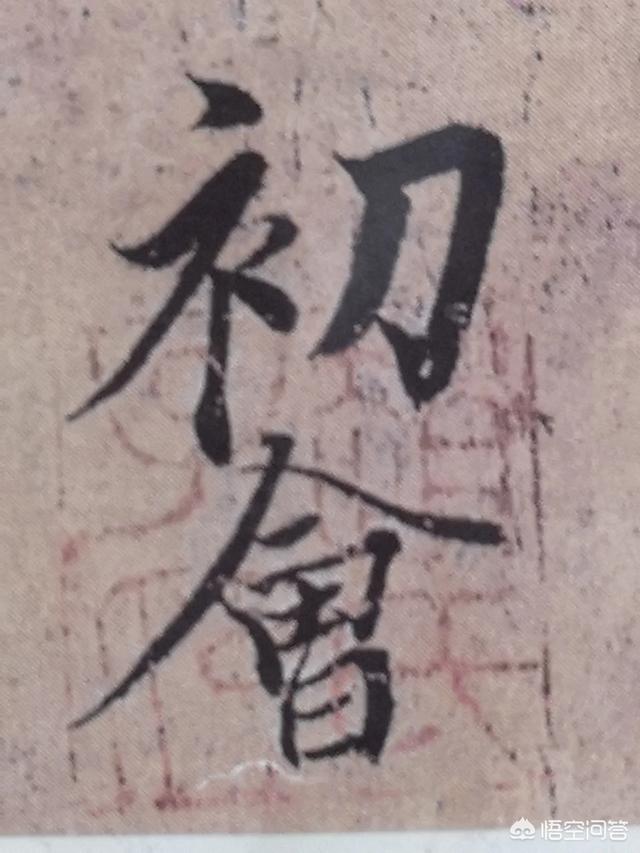 初會
悟空问答